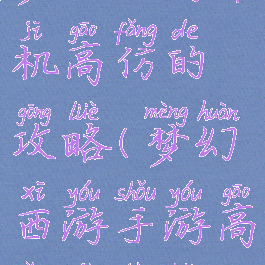 jī gāo fǎng de
机高仿的
gōng lüè mèng huàn
攻略(梦幻
xī yóu shǒu yóu gāo
西游手游高